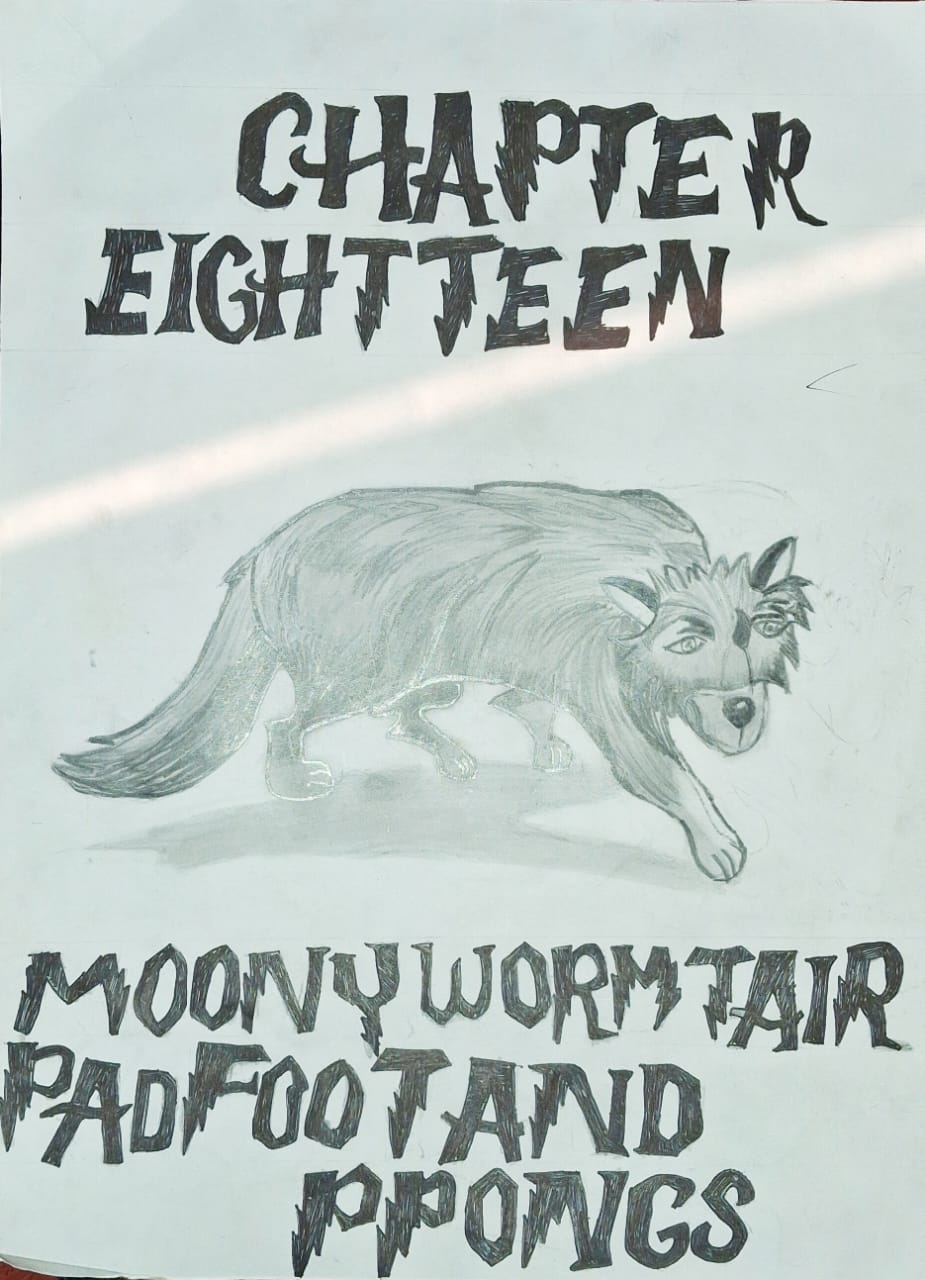 CHAPTER
EIGHTTEEN
MOONY WORMTAIR
PADFOOT AND
PPONGS